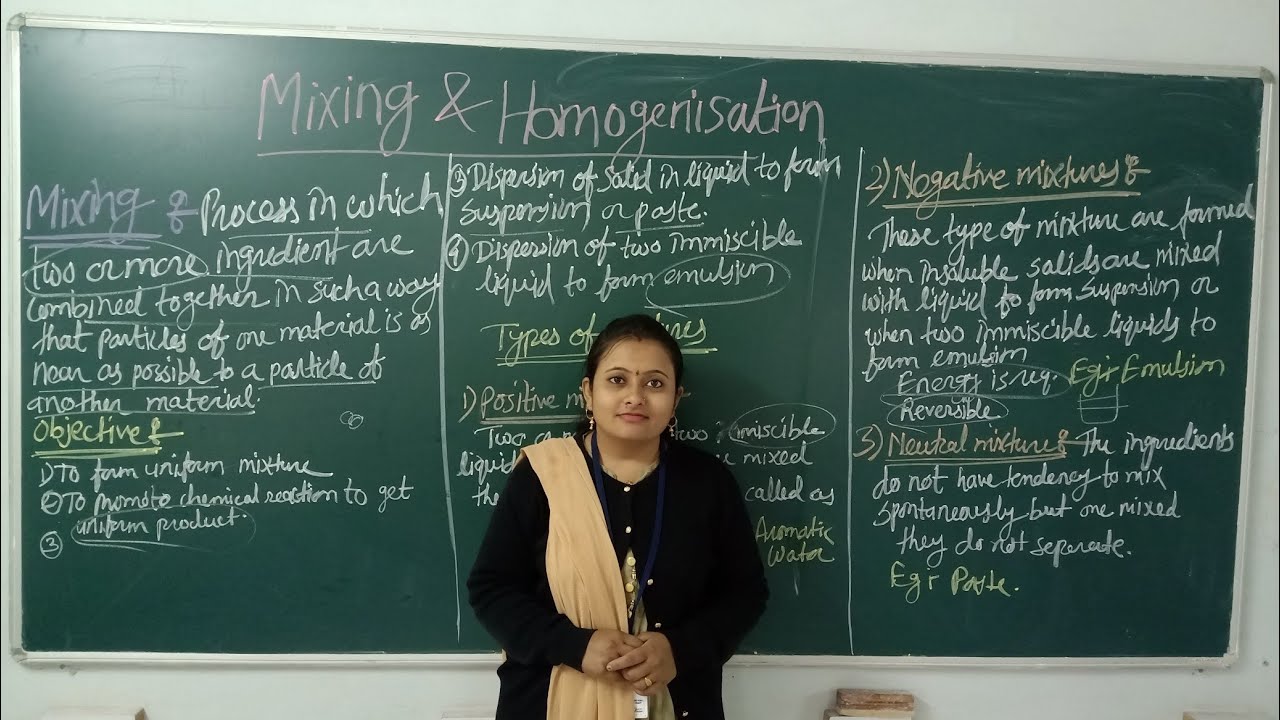 Mixing & Homogenisation
Mixing :- Process in which
two or more ingredient are
Combined together in such a way
that particles of one material is as
near as possible to a particle of
another material.
Objective :-
1) To form uniform mixture
② To promote chemical reaction to get
uniform product.
③
③ Dispersion of solid in liquid to form
suspension or paste.
④ Dispersion of two immiscible
liquid to form emulsion
Types of
1) Positive
Two two miscible
liquid mixed
called as
Aromatic
Water
2) Negative mixtures :-
These type of mixture are formed
when insoluble solids are mixed
with liquid to form suspension or
when two immiscible liquids to
form emulsion
Energy is req. Eg :- Emulsion
Reversible
3) Neutral mixture :- The ingredients
do not have tendency to mix
spontaneously but one mixed
they do not seperate.
Eg :- Paste.